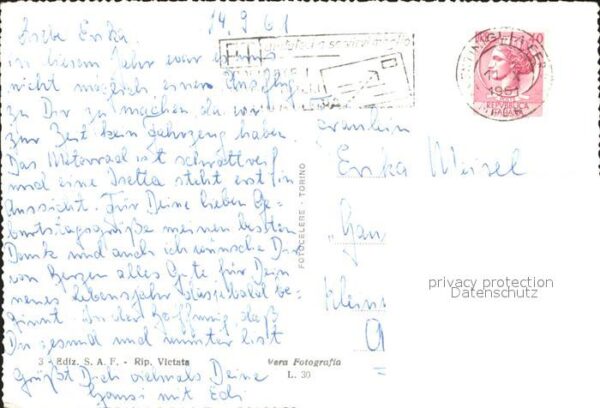 14.9.61
Liebe Erika
in diesem Jahr war es uns
nicht möglich einen Ausflug
zu Dir zu machen da wir
zur Zeit kein Fahrzeug haben.
Das Motorrad ist schrottreif
und eine Isetta steht erst in
Aussicht. Für Deine lieben Ge-
burtstagsgrüße meinen besten
Dank und auch ich wünsche Dir
von Herzen alles Gute für Dein
neues Lebensjahr das ja bald be-
ginnt. In der Hoffnung daß
Du gesund und munter bist
grüßt Dich vielmals Deine
mit Edi
3 - Ediz. S. A. F. - Rip. Vietata
Vera Fotografia
L. 30
FOTOCELERE - TORINO
1961
REPVBBLICA
ITALIANA
Fräulein
Erika Meisel
Klein
privacy protection
Datenschutz